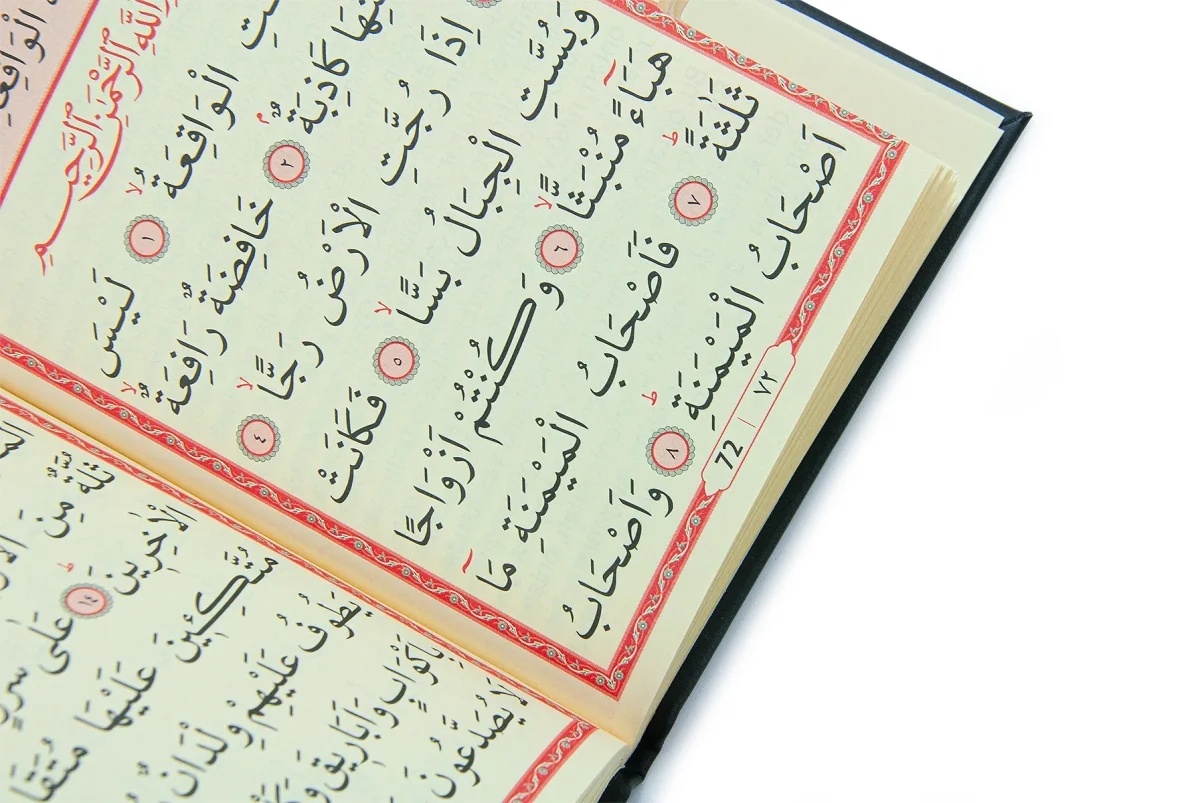 الْوَاقِعَةِ
اللّٰهِ الرَّحْمٰنِ الرَّحِيمِ
الْوَاقِعَةُۙ ١ لَيْسَ
كَاذِبَةٌۢ ٢ خَافِضَةٌ رَافِعَةٌۙ
اِذَا رُجَّتِ الْاَرْضُ رَجًّاۙ ٤
وَبُسَّتِ الْجِبَالُ بَسًّاۙ ٥ فَكَانَتْ
هَبَٓاءً مُنْبَثًّاۙ ٦ وَكُنْتُمْ اَزْوَاجًا
ثَلٰثَةًۜ ٧ فَاَصْحَابُ الْمَيْمَنَةِ مَٓا
اَصْحَابُ الْمَيْمَنَةِۜ ٨ وَاَصْحَابُ
72 | ٧٢
ثُلَّةٌ مِنَ
الْاٰخِرِينَۜ ١٤ عَلٰى
مُتَّكِـِٔينَ عَلَيْهَا
يَطُوفُ عَلَيْهِمْ وِلْدَانٌ
بِاَكْوَابٍ وَاَبَارِيقَ
لَا يُصَدَّعُونَ